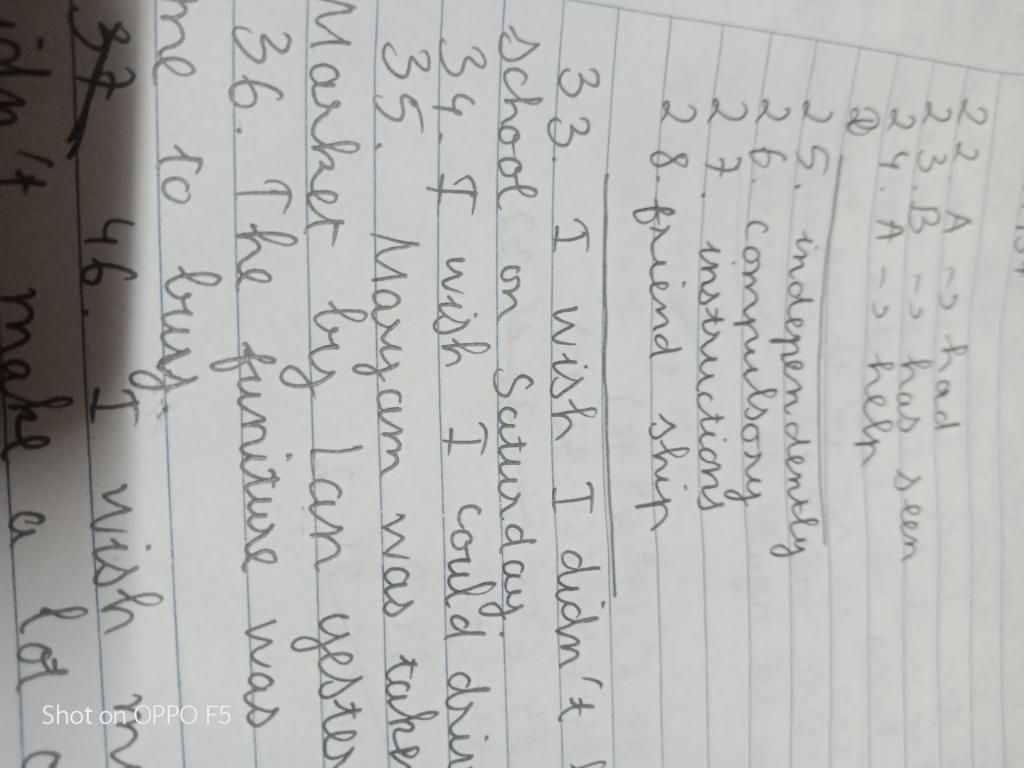 22 A -> had
23. B -> has seen
24. A -> help
25. independently
26. compulsory
27. instructions
28. friend ship
33. I wish I didn't
school on Saturday.
34. I wish I could
35. Maryam was
Market by Lan
36. The funiture was
me to buy
46. I wish
make a lot
Shot on OPPO F5